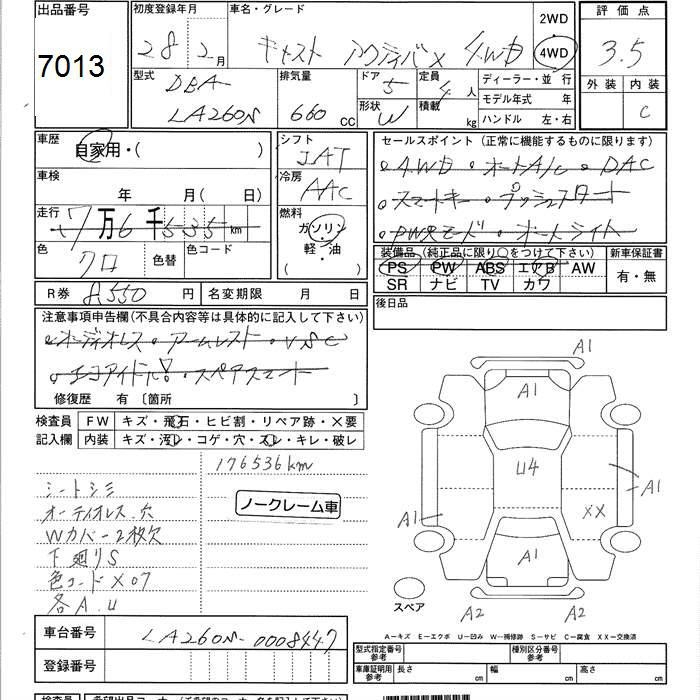 出品番号
7013
初度登録年月
28年2月
車名・グレード
キャスト アクティバX 4WD
2WD
4WD
評価点
3.5
外装 内装
C
型式
DBA-
LA260S
排気量
660 CC
ドア
5
形状
W
定員
4人
積載
kg
ディーラー・並行
モデル年式 年
ハンドル 左・右
車歴
自家用・( )
車検
年 月( 日)
走行
17万6千535km
色
クロ
色替
色コード
シフト
IAT
冷房
AAC
燃料
ガソリン
軽・油
セールスポイント (正常に機能するものに限ります)
・4WD ・オートA/C ・DAC
・スマートキー ・プッシュスタート
・PWRモード ・オートライト
装備品 (純正品に限り○をつけて下さい)
PS PW ABS エアB AW
SR ナビ TV カワ
新車保証書
有・無
R券 8,550 円
名変期限 月 日
後日品
注意事項申告欄(不具合内容等は具体的に記入して下さい)
・オーディオレス ・アームレスト ・VSC
・エコアイドル! ・スペアスマート
修復歴 有 〔箇所 〕
検査員
記入欄
FW キズ・飛石・ヒビ割・リペア跡・×要
内装 キズ・汚レ・コゲ・穴・スレ・キレ・破レ
176536km
シートシミ
オーディオレス.穴
Wカバー2枚欠
下廻りS
色コードX07
各A.U
ノークレーム車
A1
A1
U4
A1
XX
A1
A1
A2
A2
スペア
A―キズ E―エクボ U―凹み W―補修跡 S―サビ C―腐食 XX―交換済
車台番号
LA260S-0008447
登録番号
型式指定番号
参考
種別区分番号
参考
車庫証明用
参考
長さ cm
幅 cm
高さ cm
検査員
希望出品コーナー